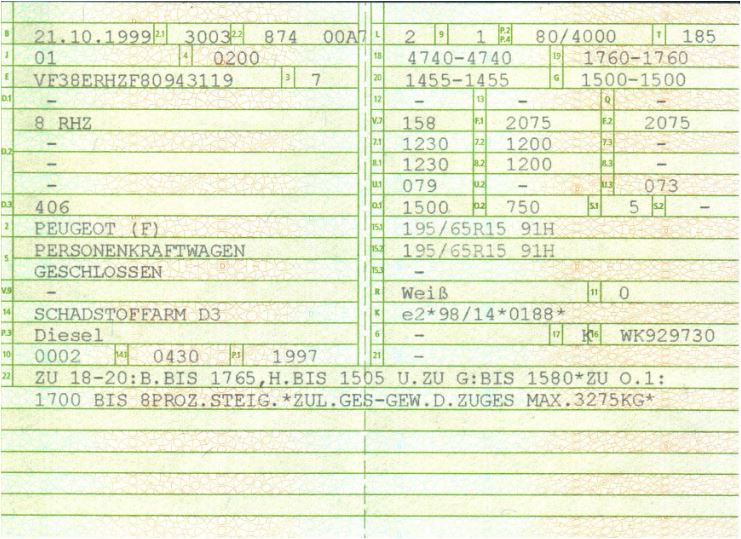 B 21.10.1999 2.1 3003 2.2 874 00A7
J 01 4 0200
E VF38ERHZF80943119 3 7
D.1 –
D.2 8 RHZ
–
–
–
D.3 406
2 PEUGEOT (F)
5 PERSONENKRAFTWAGEN
GESCHLOSSEN
V.9 –
14 SCHADSTOFFARM D3
P.3 Diesel
10 0002 14.1 0430 P.1 1997
L 2 9 1 P.2 P.4 80/4000 T 185
18 4740-4740 19 1760-1760
20 1455-1455 G 1500-1500
12 – 13 – Q –
V.7 158 F.1 2075 F.2 2075
7.1 1230 7.2 1200 7.3 –
8.1 1230 8.2 1200 8.3 –
U.1 079 U.2 – U.3 073
O.1 1500 O.2 750 S.1 5 S.2 –
15.1 195/65R15 91H
15.2 195/65R15 91H
15.3 –
R Weiß 11 0
K e2*98/14*0188*
6 – 17 K 16 WK929730
21 –
22 ZU 18-20:B.BIS 1765,H.BIS 1505 U.ZU G:BIS 1580*ZU O.1:
1700 BIS 8PROZ.STEIG.*ZUL.GES-GEW.D.ZUGES MAX.3275KG*